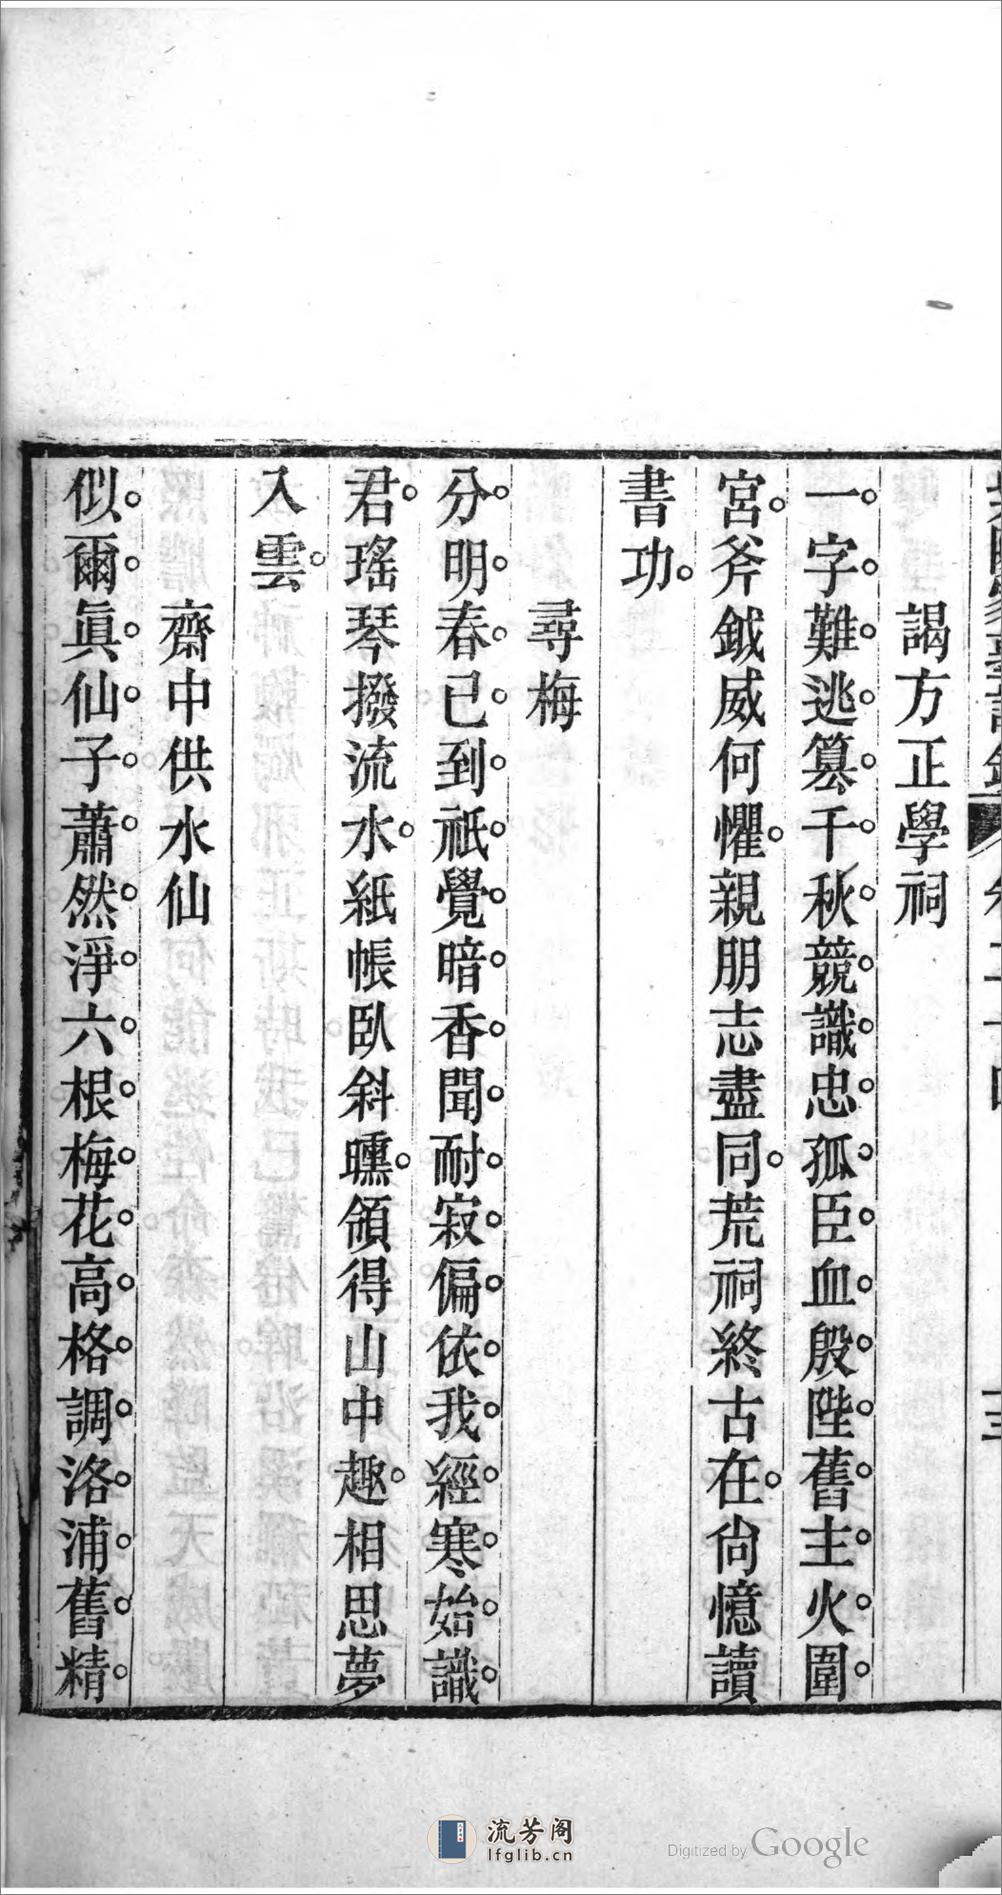 謁方正學祠
一字難逃篡千秋競識忠孤臣血殷陛舊主火圍
宮斧鉞威何懼親朋志盡同荒祠終古在尙憶讀
書功
尋梅
分明春已到祇覺暗香聞耐寂偏依我經寒始識
君瑤琴撥流水紙帳臥斜曛領得山中趣相思夢
入雲
齋中供水仙
似爾眞仙子蕭然淨六根梅花高格調洛浦舊精
流芳阁
lfglib.cn
Digitized by Google